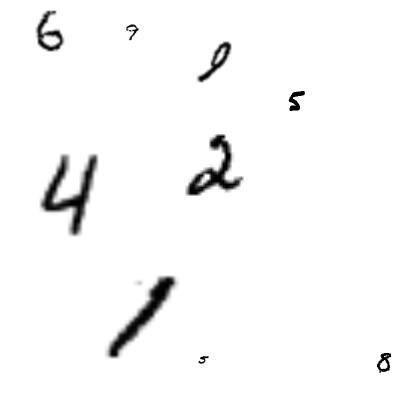 6 9 9
5
4 2
1
5 8